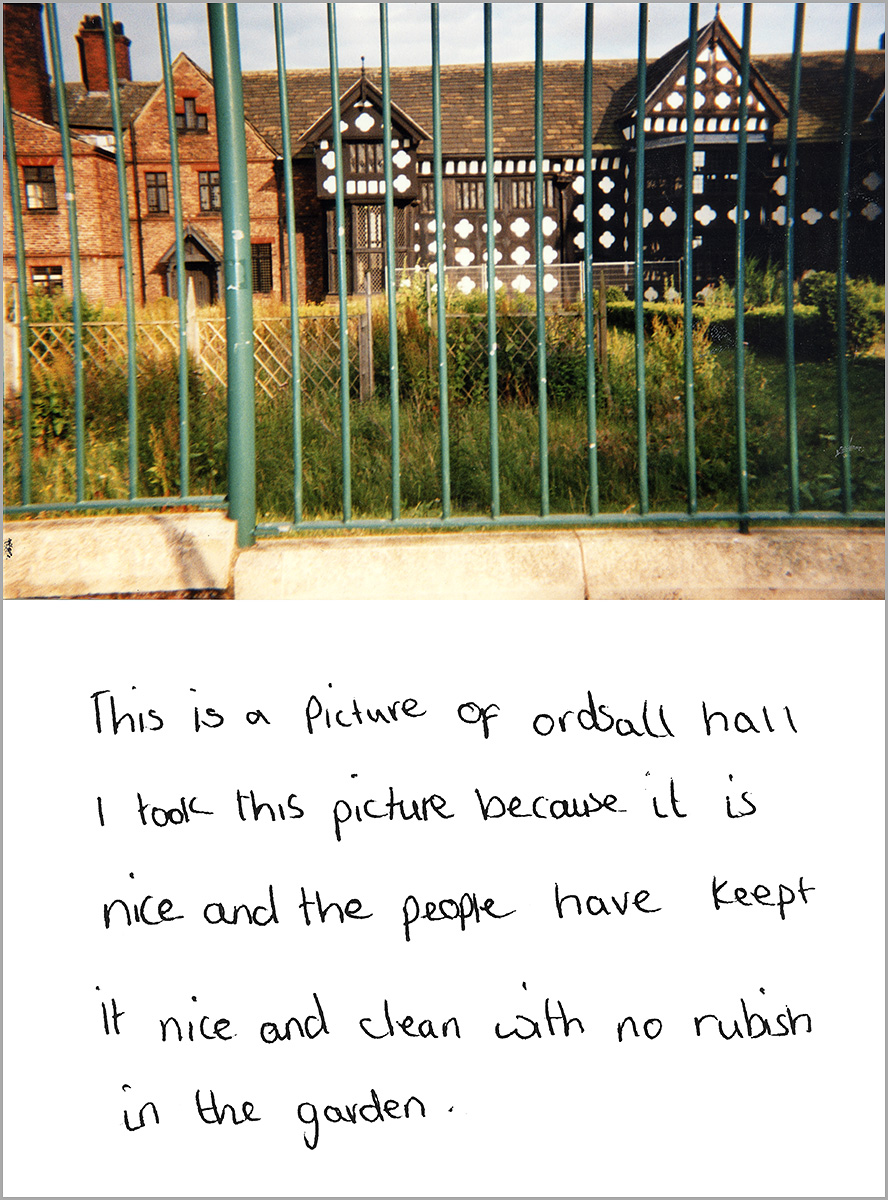 This is a Picture of ordsall hall
I took this picture because it is
nice and the people have keept
it nice and clean with no rubish
in the garden.